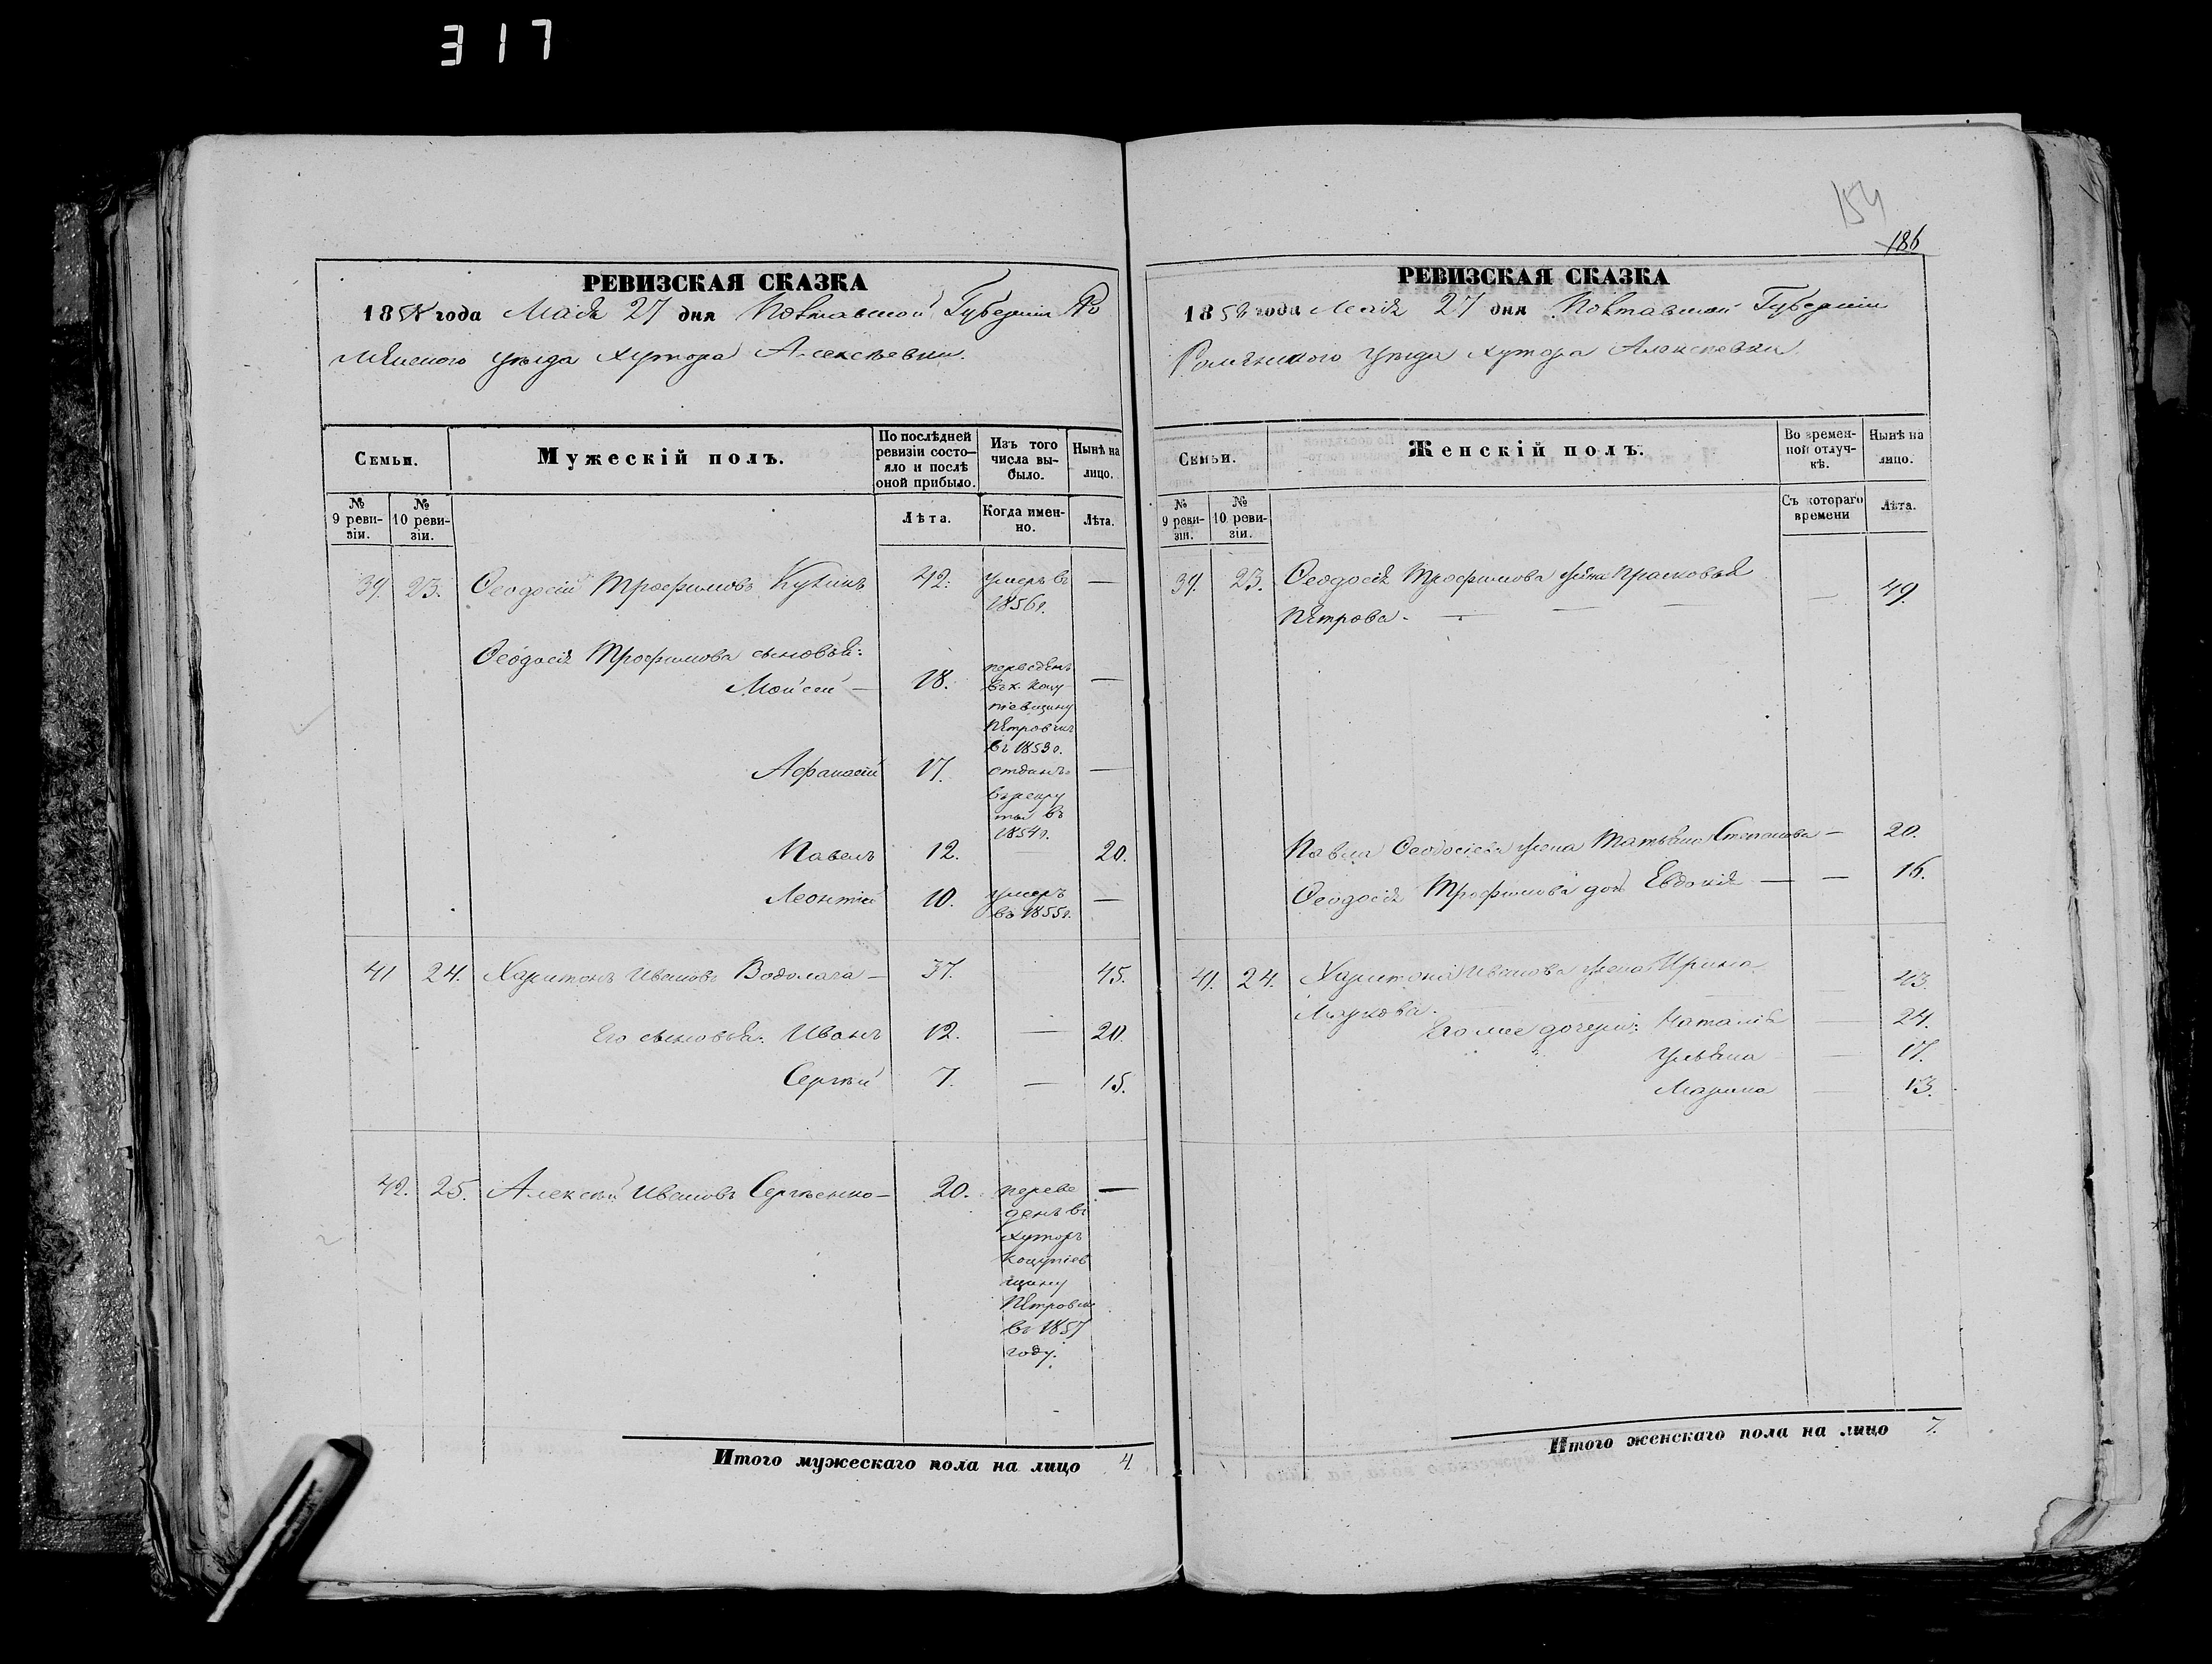 317
154
186
РЕВИЗСКАЯ СКАЗКА
1858 года Маія 27 дня Полтавской Губерніи Ро
менского уѣзда хутора Алексѣевки.
Семьи.
Мужескій полъ.
По послѣдней ревизіи состояло и послѣ оной прибыло.
Изъ того числа выбыло.
Нынѣ на лицо.
№ 9 ревизіи.
№ 10 ревизіи.
Лѣта.
Когда именно.
Лѣта.
39. 23. Ѳеодосій Трофимовъ 42. умеръ въ —
1856 г.
Ѳеодосія Трофимова сыновья:
Мойсей — 18. переведенъ —
въ х.
Петровск
въ 1853 г.
Афанасій 17. отданъ —
въ рекру
ты въ
1854 г.
Павелъ 12. — 20.
Леонтій 10. умеръ —
въ 1855 г.
41 24. Харитонъ Ивановъ Водолага — 37. 45.
Его сыновья: Иванъ 12. — 20.
Сергѣй 7. — 15.
42. 25. Алексѣй Ивановъ Сергѣенко — 20. переве —
денъ въ
хуторъ
Коцупіев
щину
Петровск
въ 1857
году.
Итого мужескаго пола на лицо 4
РЕВИЗСКАЯ СКАЗКА
1858 года Маія 27 дня Полтавской Губерніи
Роменского уѣзда хутора Алексѣевки.
Семьи.
Женскій полъ.
Во временной отлучкѣ.
Нынѣ на лицо.
№ 9 ревизіи.
№ 10 ревизіи.
Съ котораго времени
Лѣта.
39. 23. Ѳеодосія Трофимова жена Прасковья
Петрова. — — — — 49.
Павла Ѳеодосіева жена Татьяна Степанова — 20.
Ѳеодосія Трофимова дочь Евдокія — — 16.
41. 24. Харитона Иванова жена Ирина
Маркова. 43.
Его же дочери: Наталія — 24.
Ульяна — 17.
Марина — 13.
Итого женскаго пола на лицо 7.